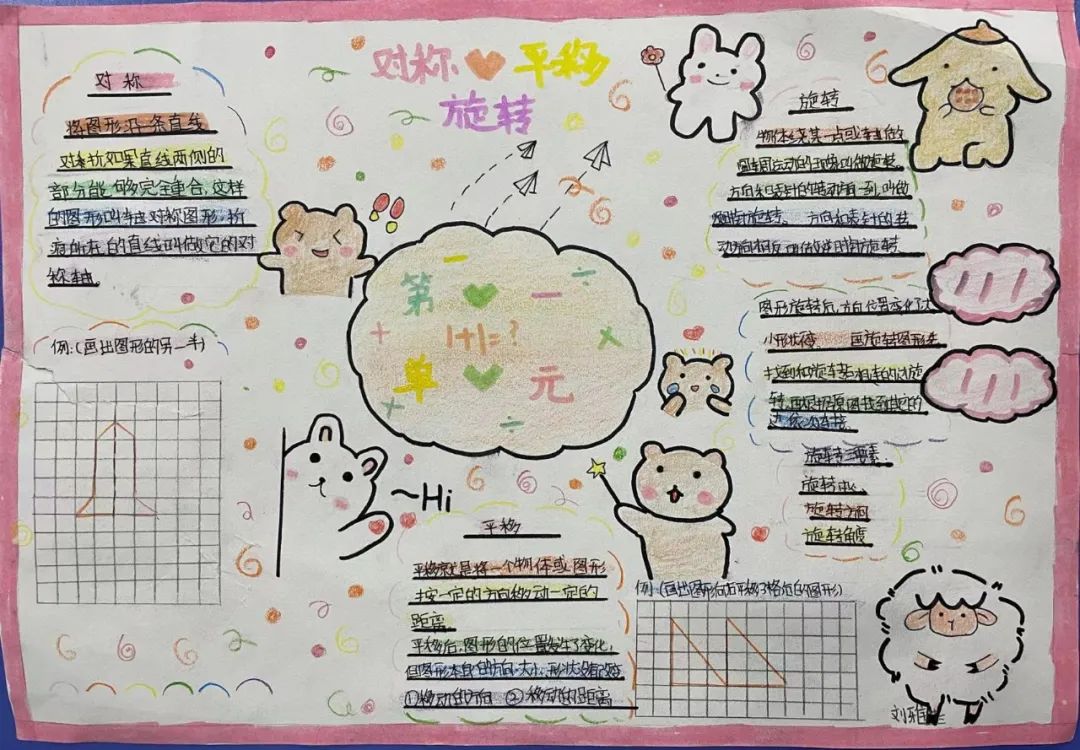 对称♥平移
旋转
对称
将图形沿一条直线
对折如果直线两侧的
部分能够完全重合,这样
的图形叫轴对称图形,折
痕所在的直线叫做它的对
称轴。
例:(画出图形的另一半)
第一
1+1=?
单元
~Hi
平移
平移就是将一个物体或图形
按一定的方向移动一定的
距离
平移后,图形的位置发生了变化,
但图形本身的方向、大小、形状没有改变
①移动的方向 ②移动的距离
旋转
物体绕某一点或轴做
圆周运动的现象叫做旋转。
方向和表针的转动方向一到,叫做
顺时针旋转、方向和表针的转
动方向相反叫做逆时针旋转
图形旋转后,方向位置变化了大
小形状不变 画旋转图形先
旋转三要素
旋转中心
旋转方向
旋转角度
例:(画出图形向右平移3格后的图形)